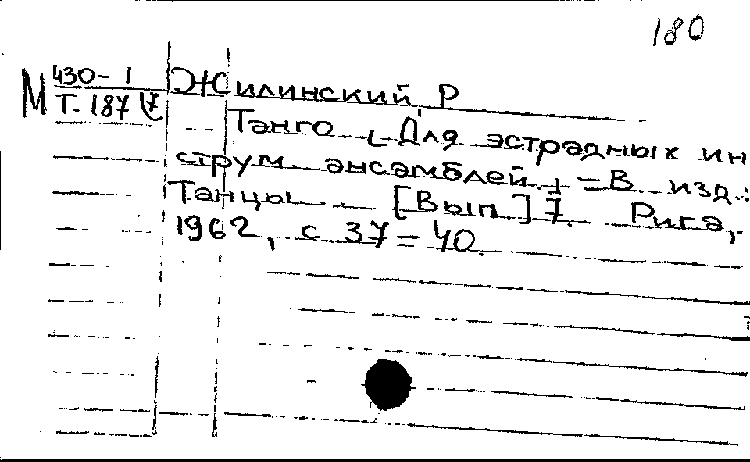 180
М 430-1
Т-187
Жилинский Р
Танго [Для эстрадных ин
струм ансамблей] = В изд.:
Танцы [Вып] 7. Рига,
1962, с 37=40.